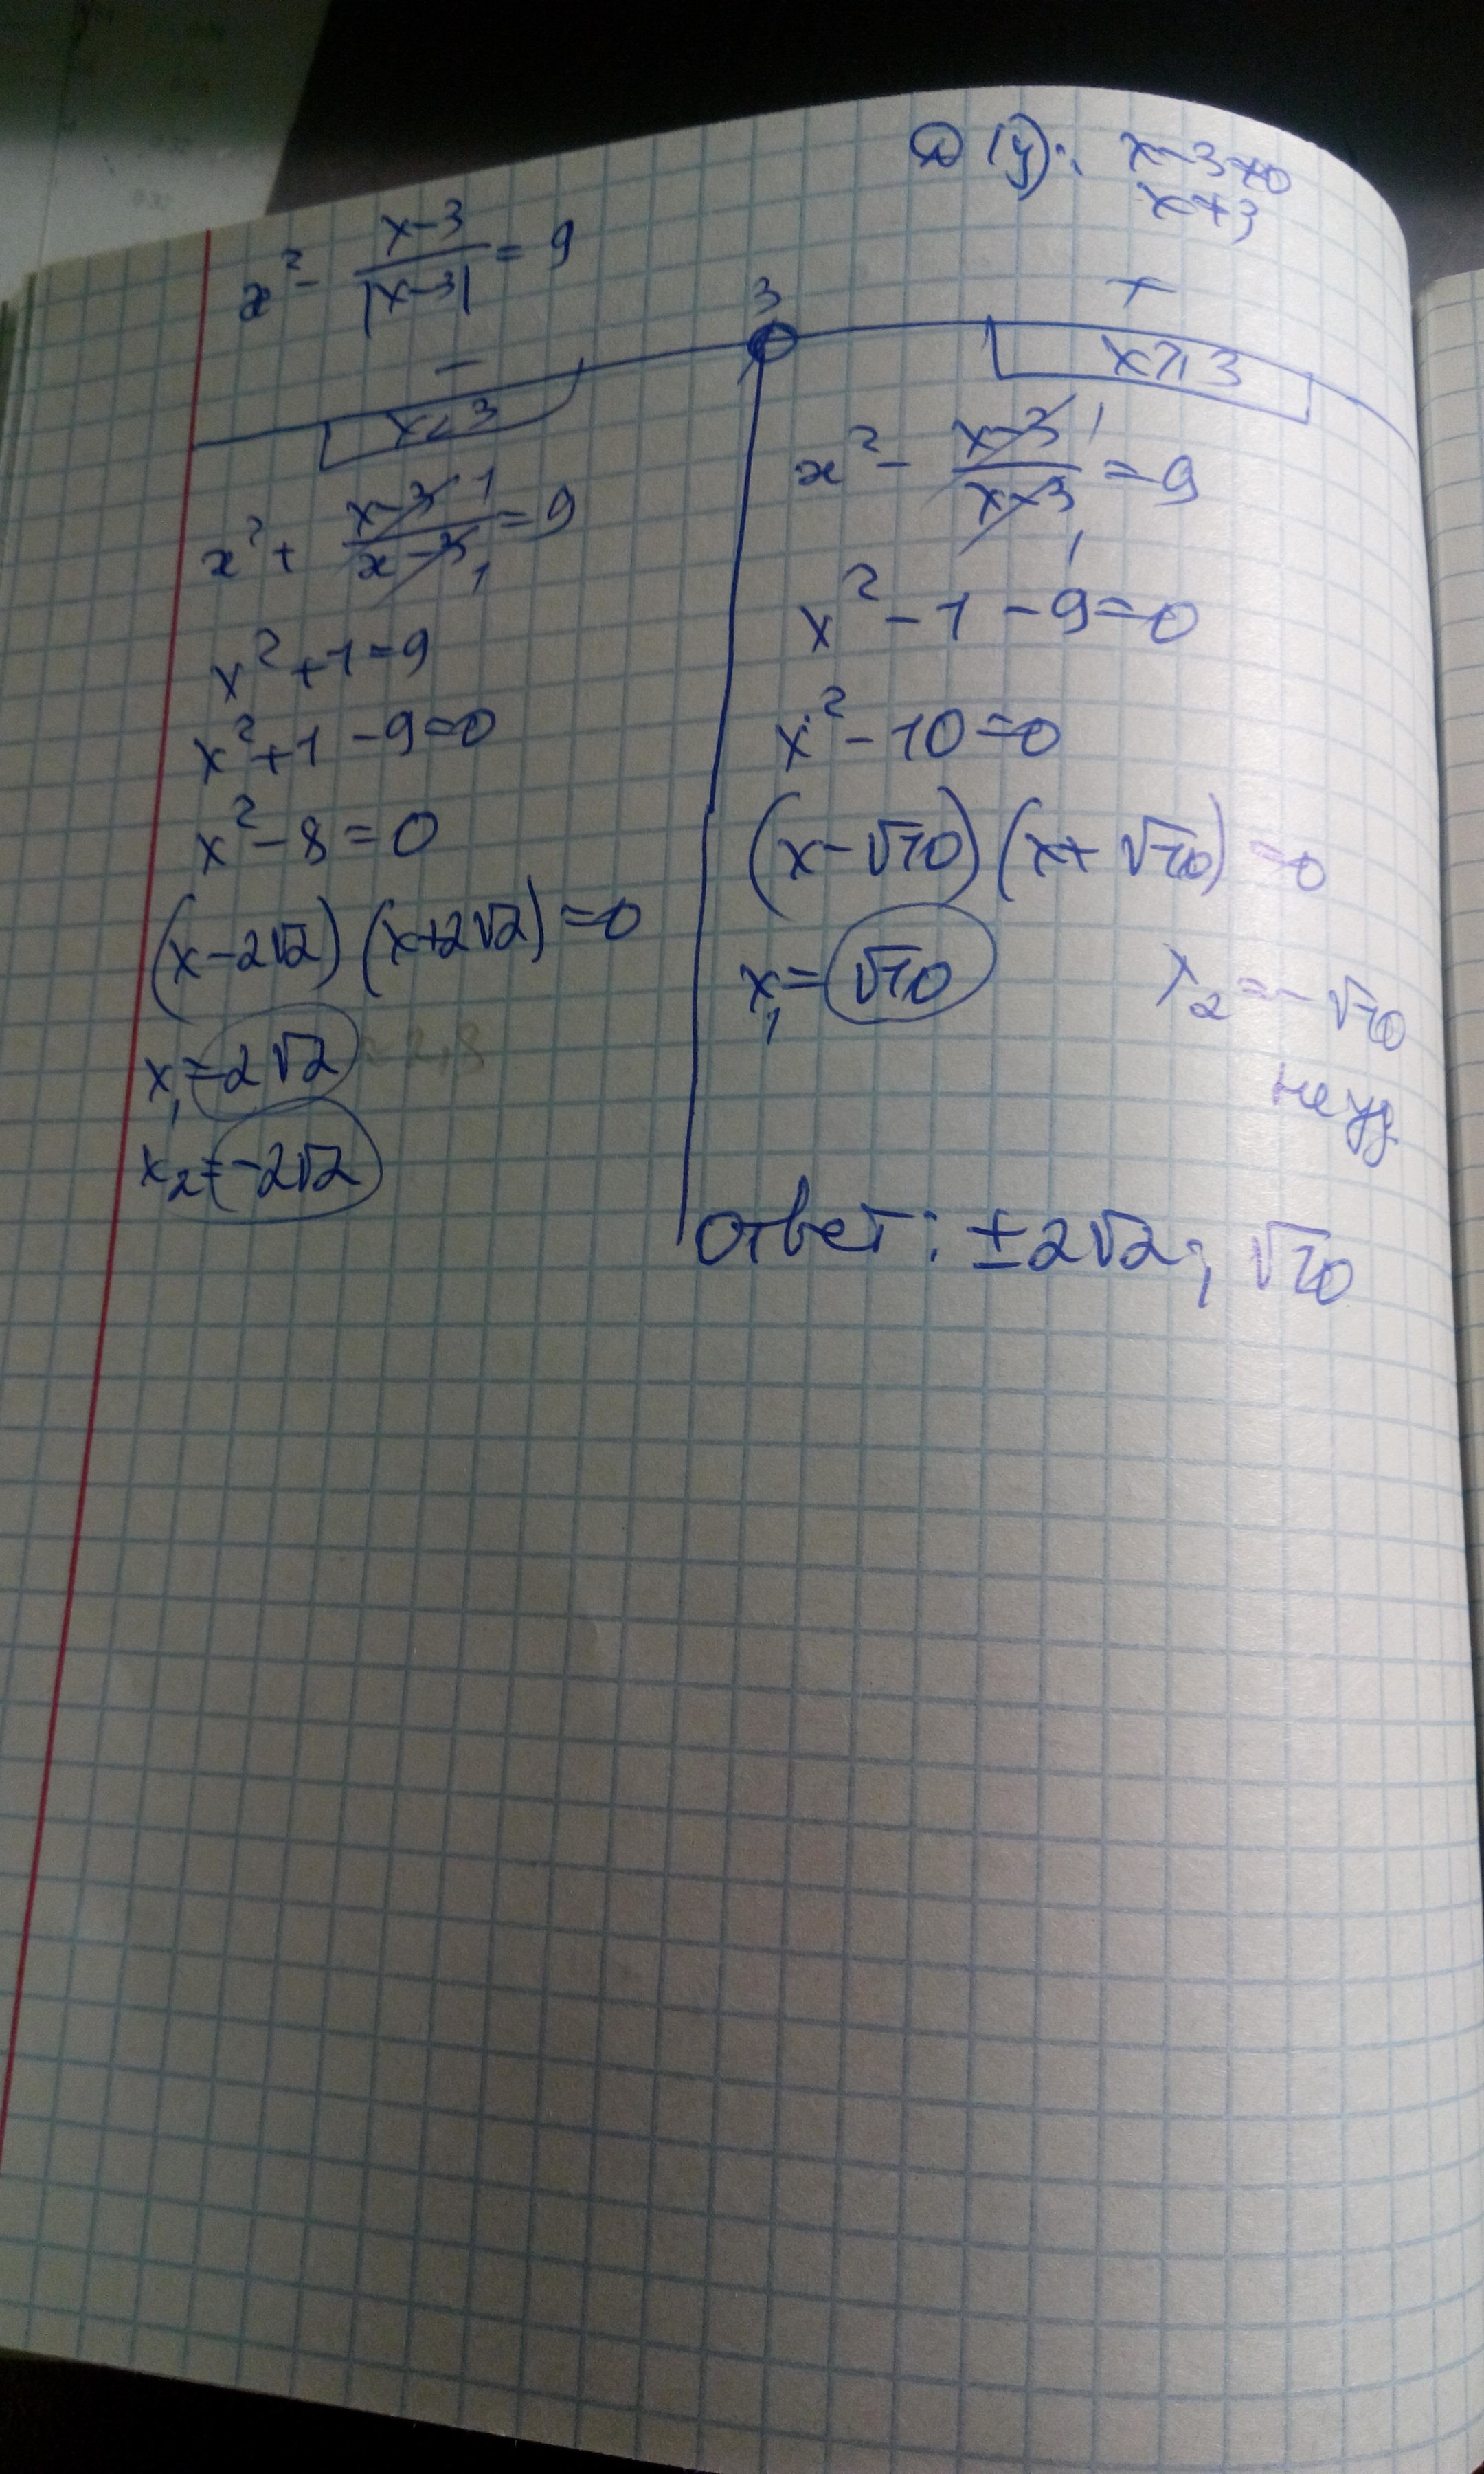 D(y): x-3≠0
x≠3
x² - (x-3)/|x-3| = 9
3
- +
x<3
x⩾3
x² + (x-3)/(x-3) = 9
1
1
x²+1=9
x²+1-9=0
x²-8=0
(x-2√2)(x+2√2)=0
x₁=2√2 ≈2,8
x₂=-2√2
x² - (x-3)/(x-3) = 9
1
1
x²-1-9=0
x²-10=0
(x-√10)(x+√10)=0
x₁=√10 x₂=-√10
не уд
Ответ: ±2√2; √10